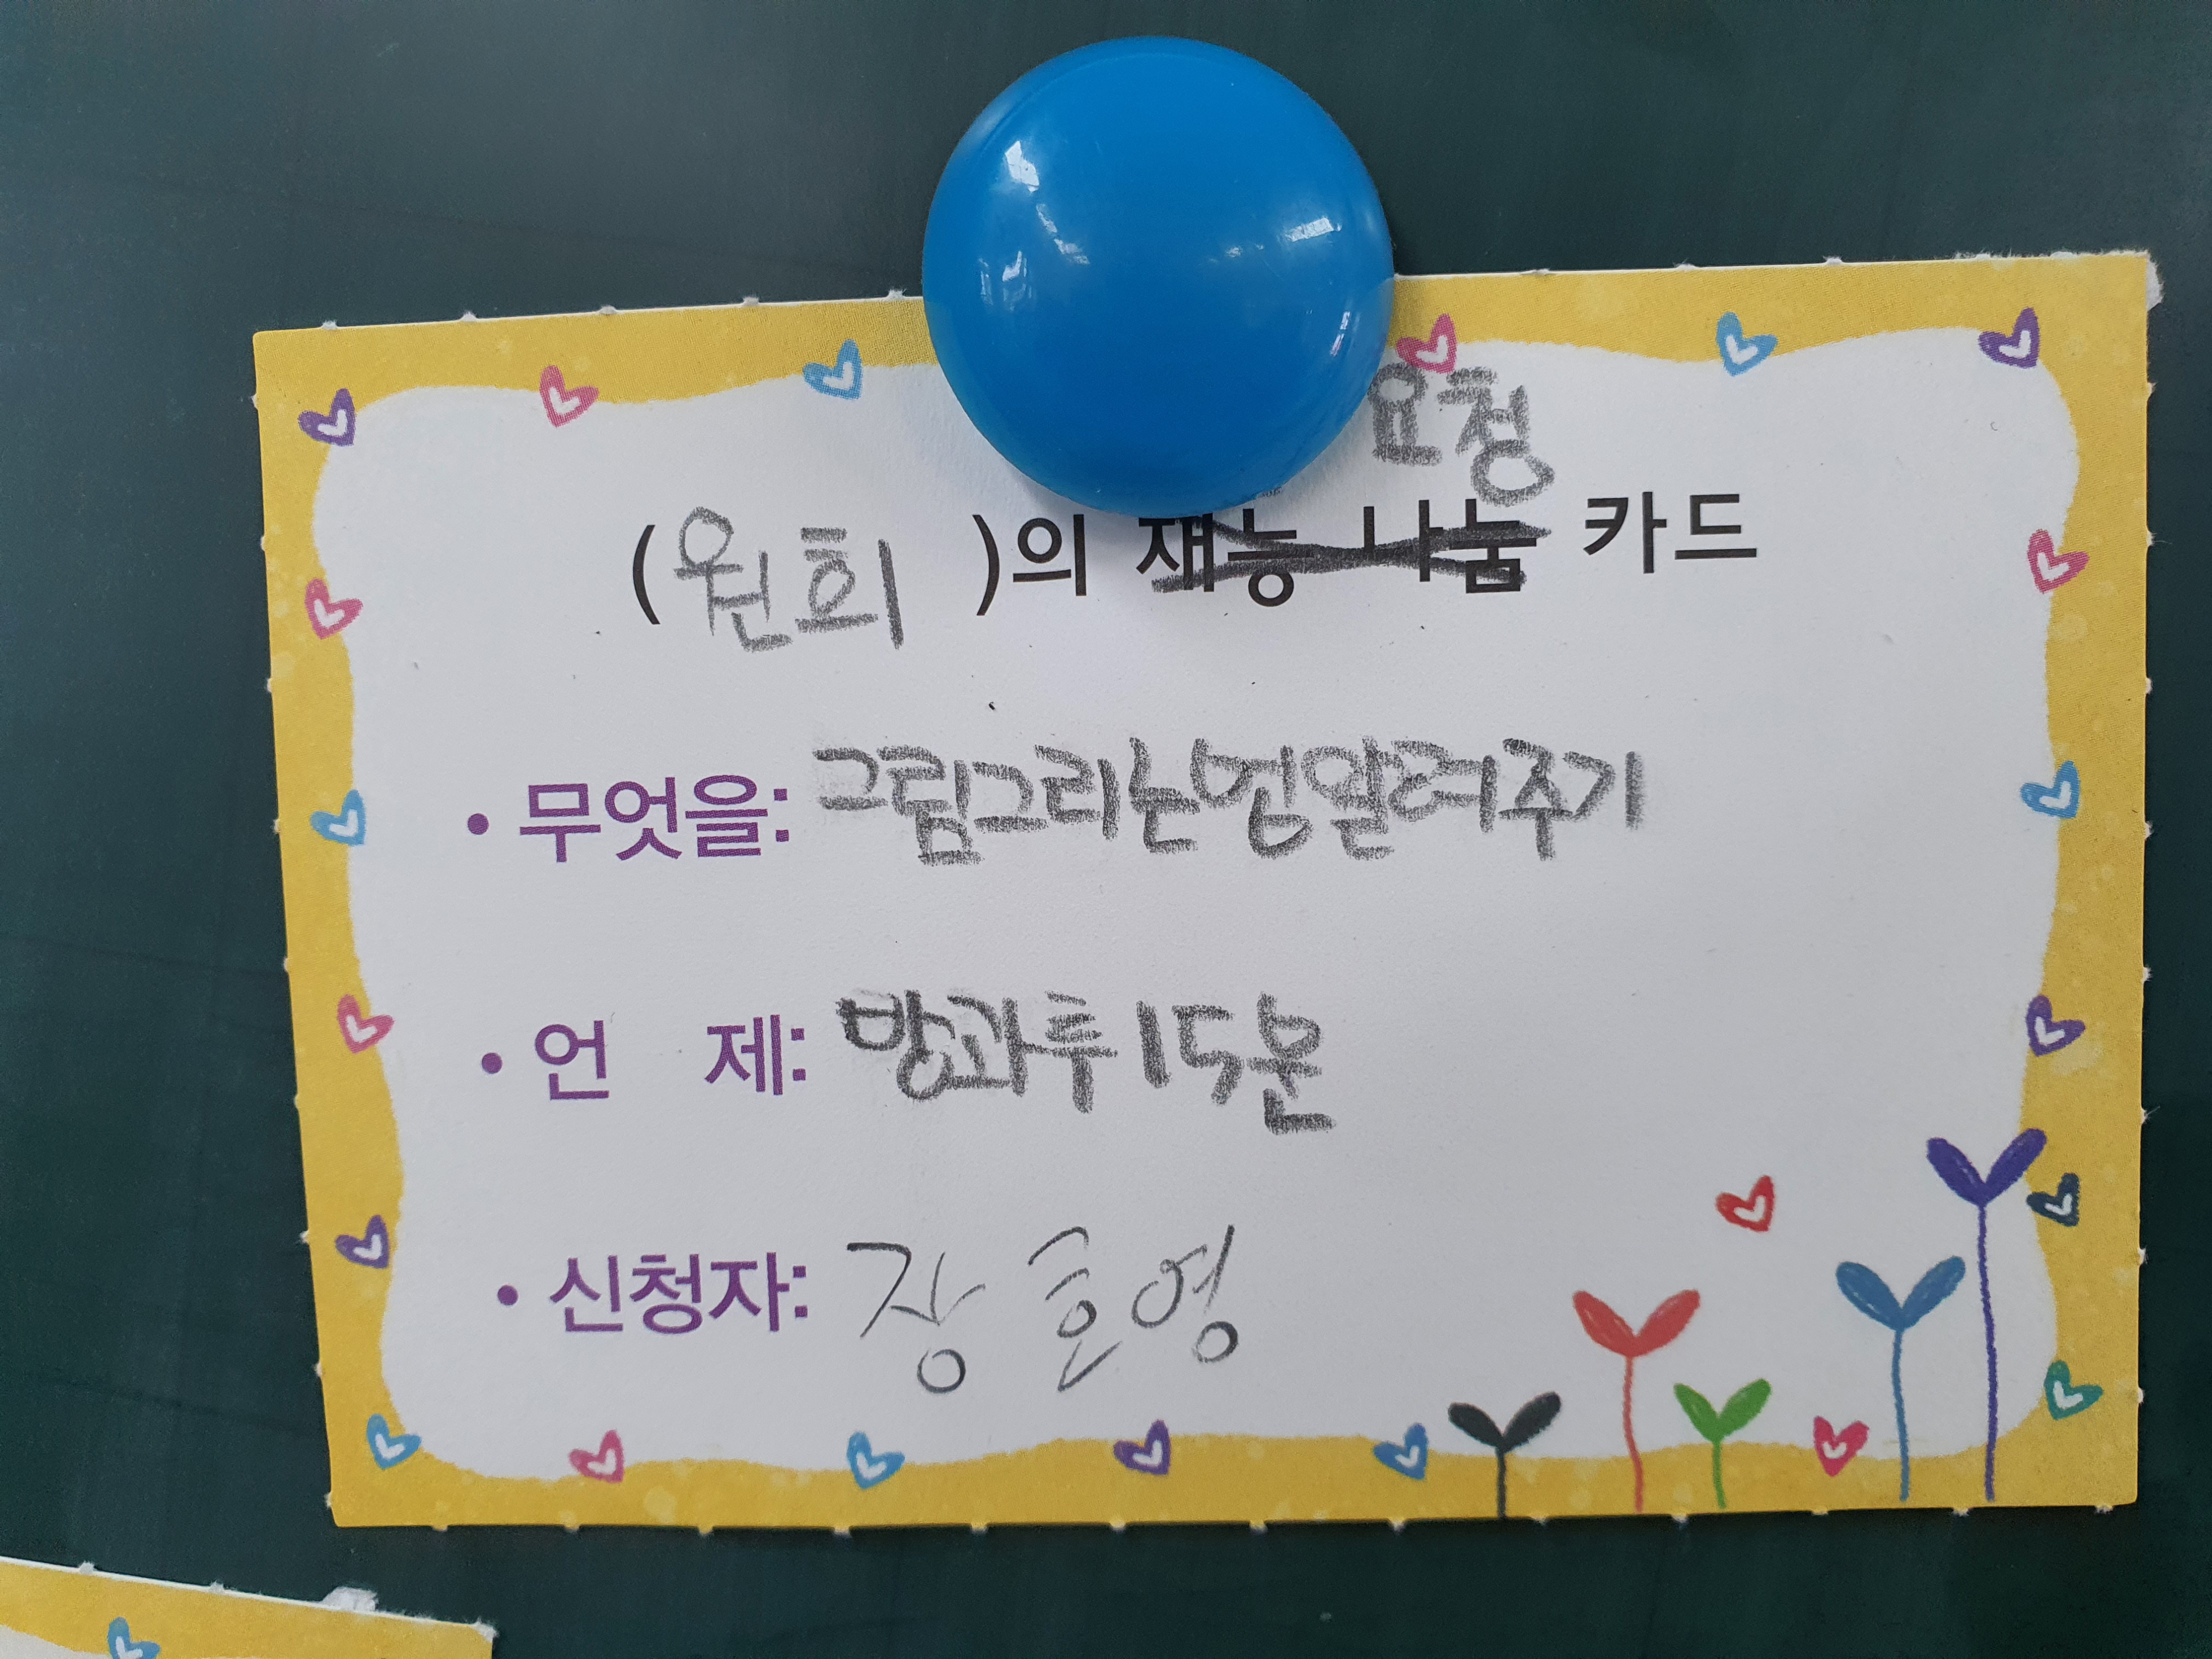 요청
(원회 )의 재능 나눔 카드
• 무엇을: 그림그리는법알려주기
• 언 제: 방과후15분
• 신청자: 장호영